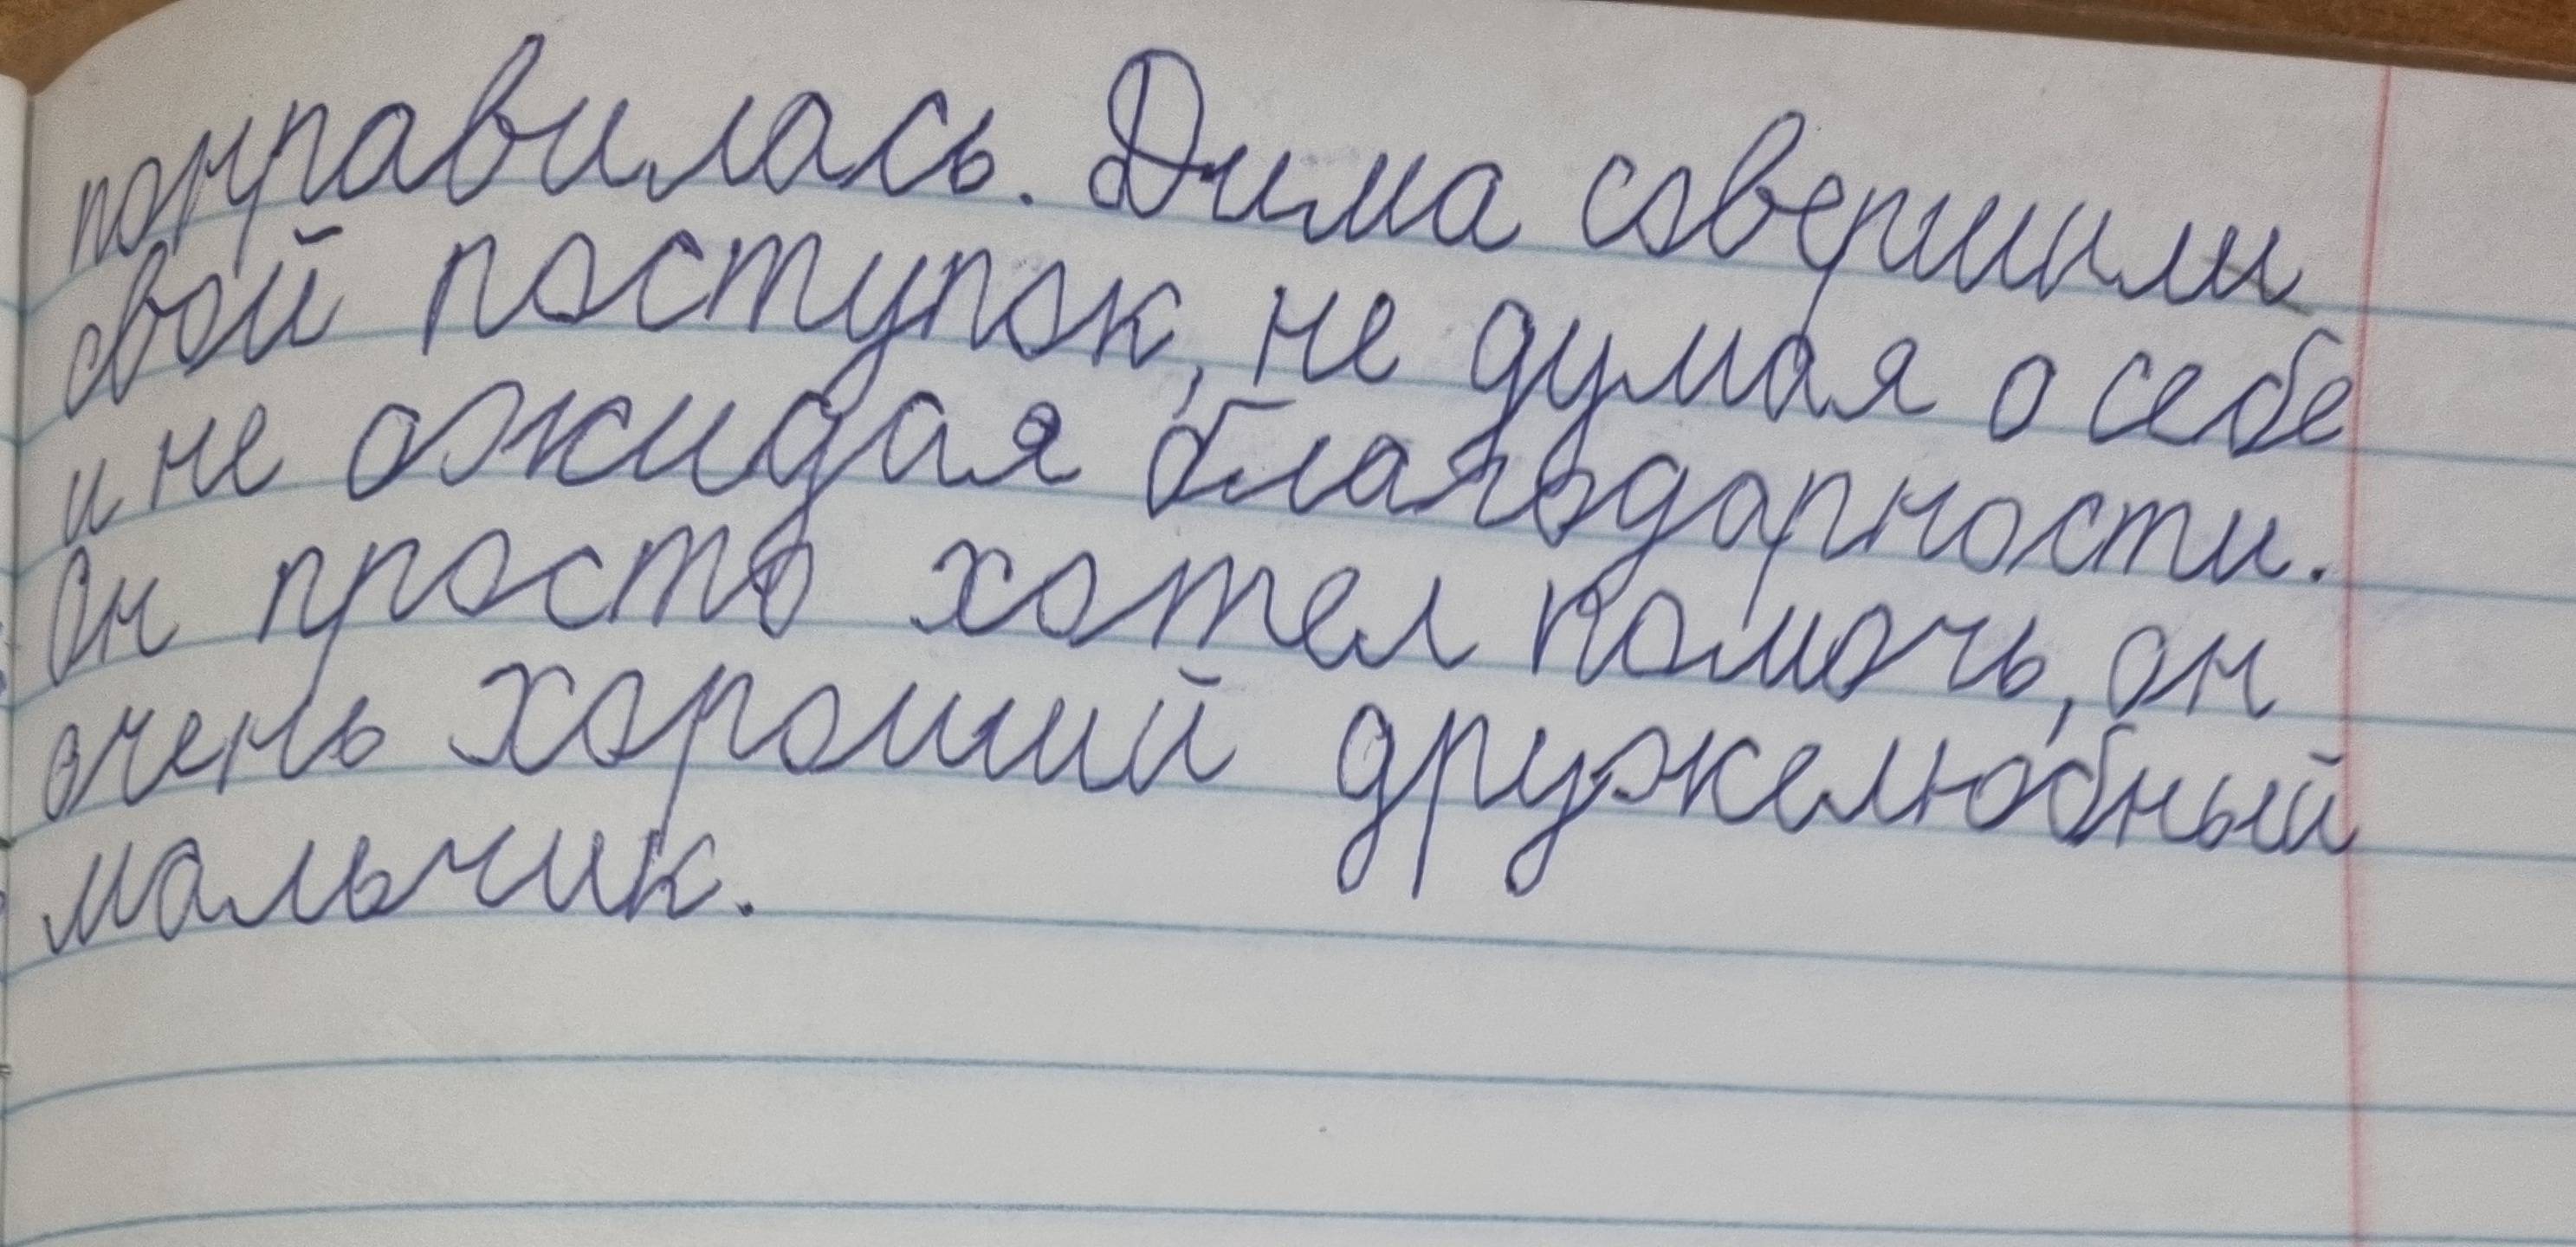 понравилась. Дима совершили
свой поступок, не думая о себе
и не ожидая благодарности.
Он просто хотел помочь, он
очень хороший дружелюбный
мальчик.